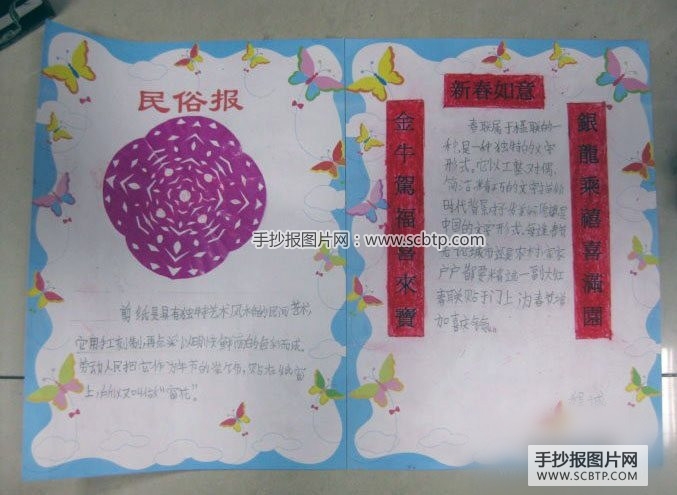 民俗报
剪纸是具有独特艺术风格的民间艺术,
劳动人民把它作为年节的
上,所以又叫做“窗花”。
新春如意
金牛駕福喜來寶
春联属于楹联的一
种,是一种独特的文学
形式。它以工整、对偶、
简洁、精巧的文字描绘
时代背景,抒发美好愿望,是
中国的文学形式,每逢春节
无论城市还是农村,家家
户户都要精选一副大红
春联贴于门上,为春节增
加喜庆气氛。
銀龍乘禧喜滿園
手抄报图片网:www.scbtp.com
手抄报图片网
WWW.SCBTP.COM